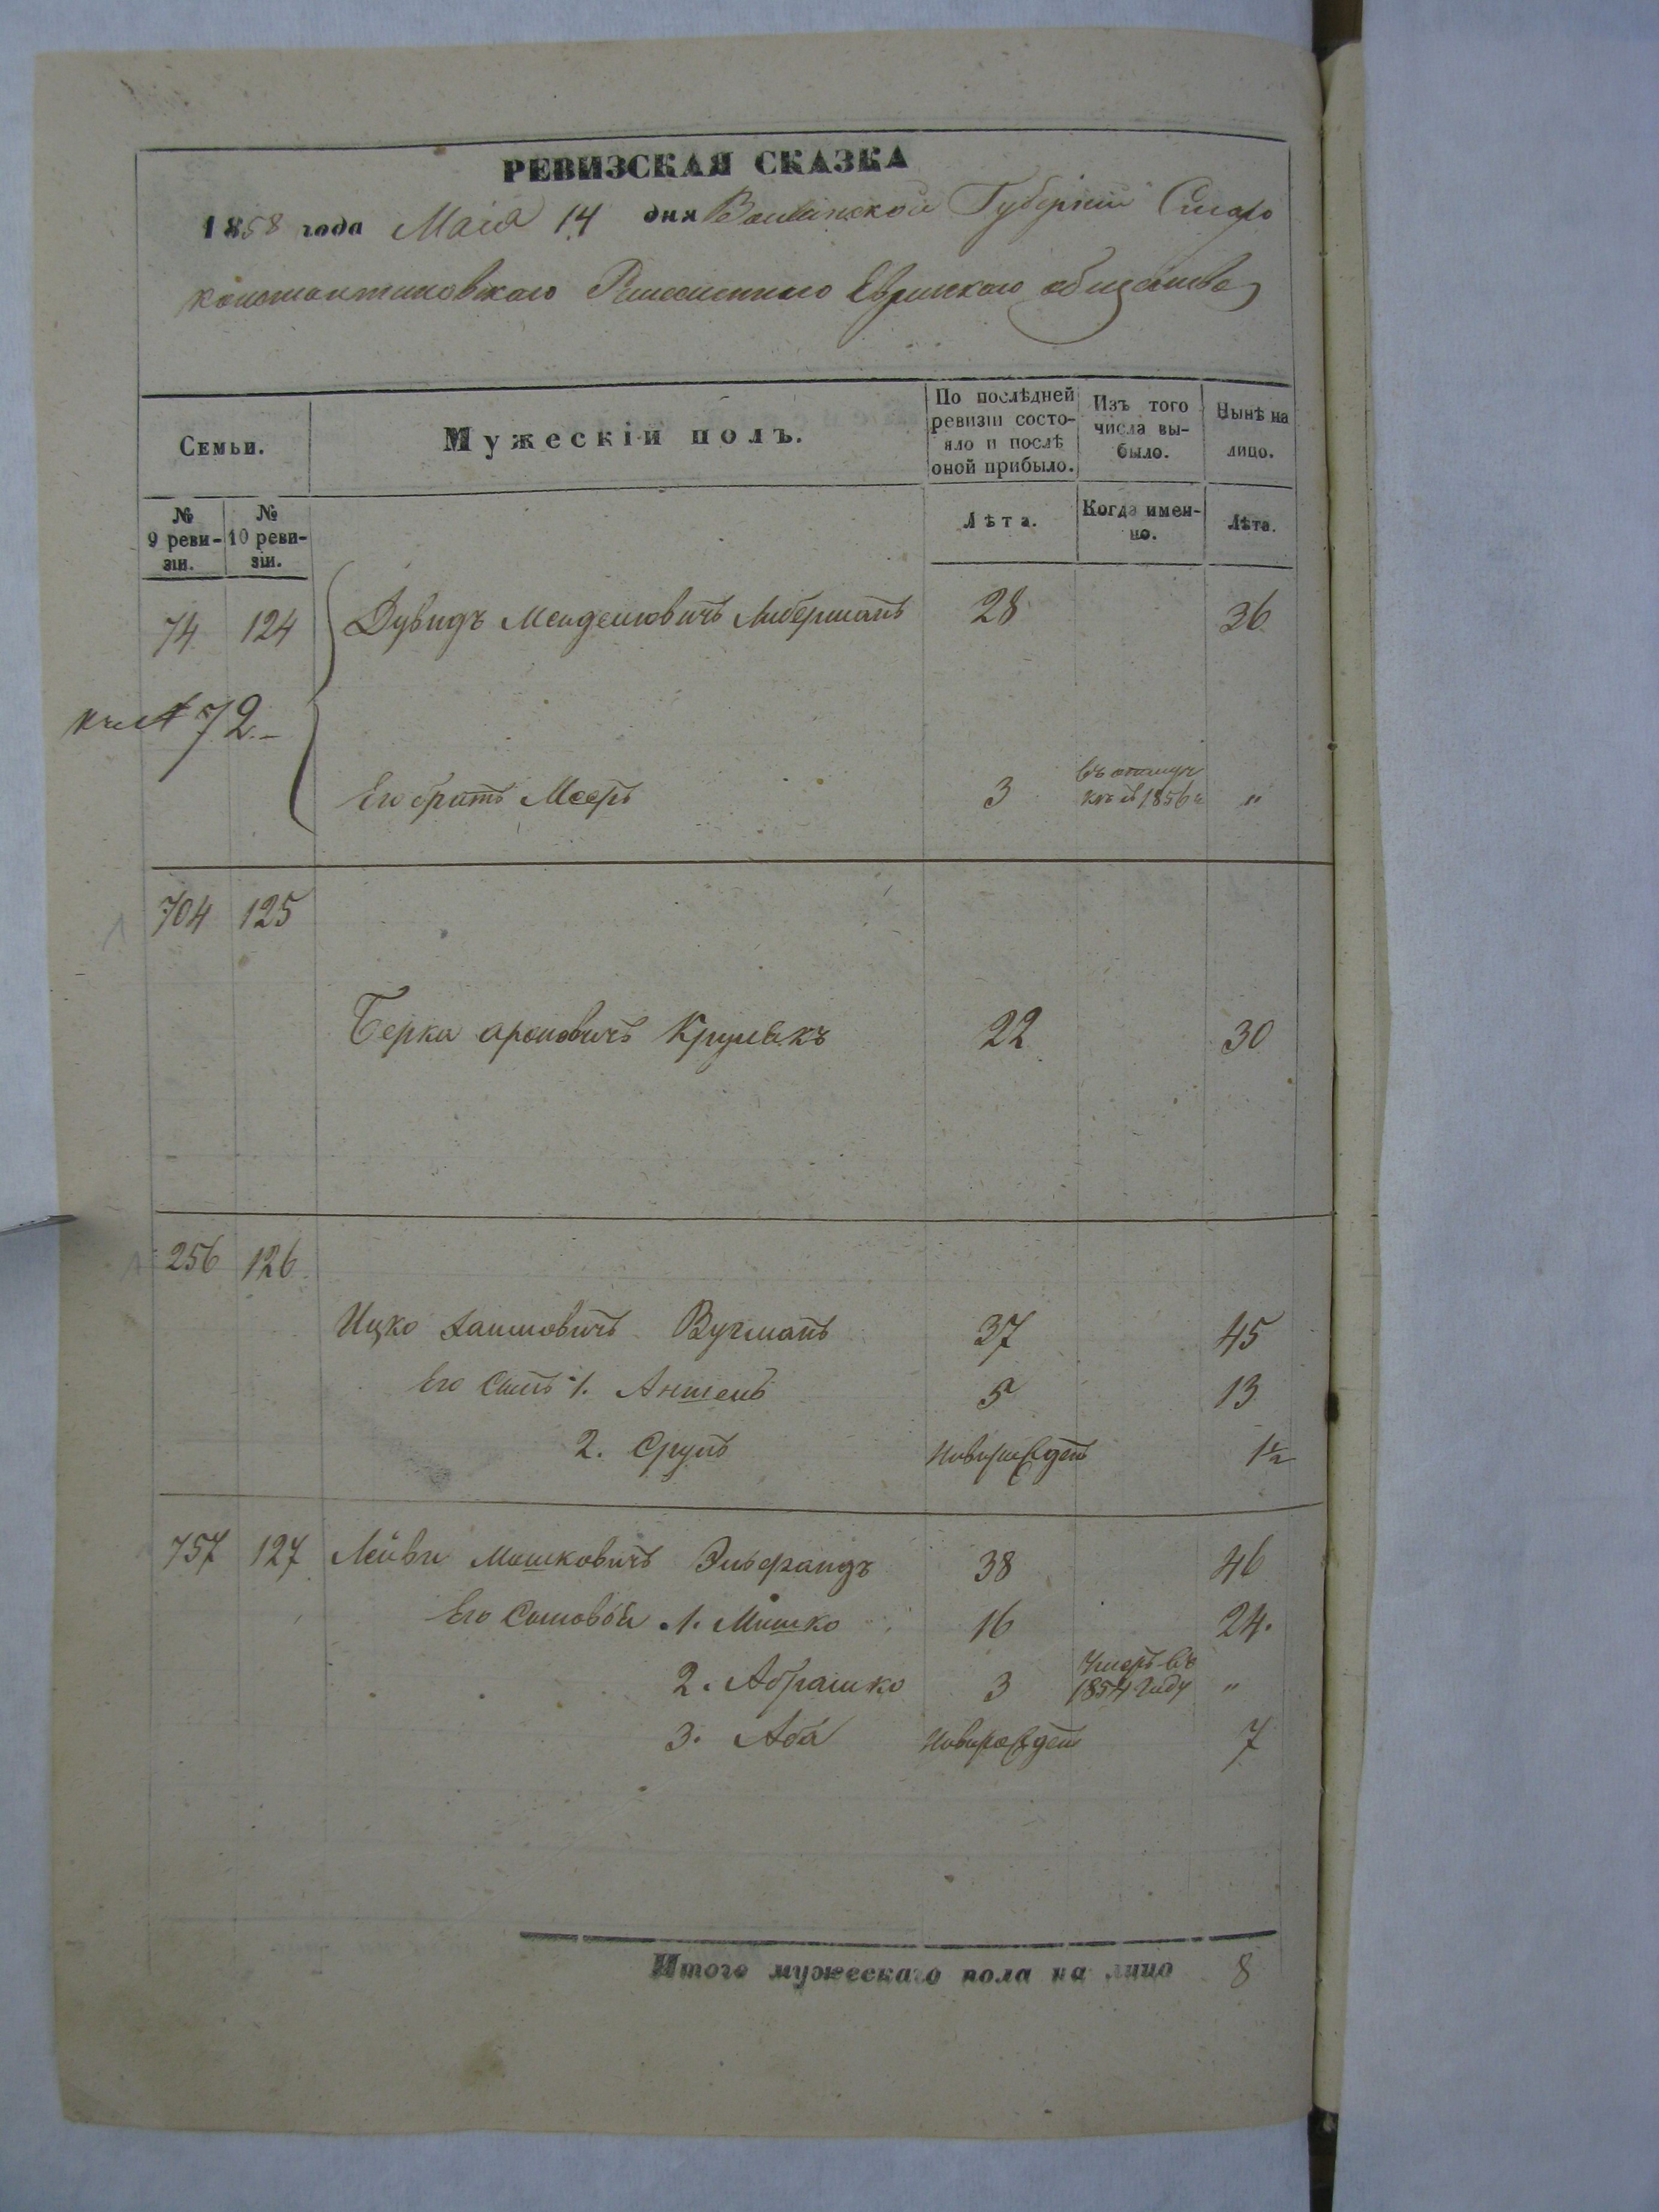 РЕВИЗСКАЯ СКАЗКА
1858 года Маія 14 дня Волынской Губерніи Старо
константиновскаго Еврейскаго общества
Семьи.
Мужескій полъ.
По послѣдней ревизіи состояло и послѣ оной прибыло.
Изъ того числа выбыло.
Нынѣ на лицо.
№ 9 ревизіи.
№ 10 ревизіи.
Лѣта.
Когда именно.
Лѣта.
74 124 Дувидъ Мендельовичъ Либерманъ 28 36
72
Его братъ Мееръ 3 въ 1856 "
704 125
Берка Ароновичъ 22 30
256 126
Ицко Хаимовичъ Вугманъ 37 45
Его Сынъ 1. Аншель 5 13
2. Сруль Новорожденъ 1½
757 127 Лейви Мошковичъ Эльфандъ 38 46
Его Сыновья 1. Мошко 16 24.
2. Абрашко 3 Умеръ въ 1854 году "
3. Аба Новорожден 7
Итого мужескаго пола на лицо 8